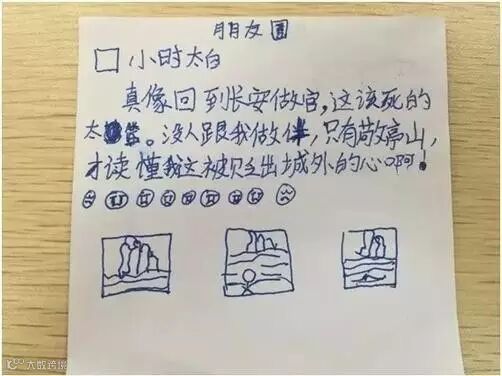 朋友圈
小时太白
真像回到长安做官,这该死的
太。没人跟我做伴,只有敬亭山,
才读懂我这被贬出城外的心啊!
大数跨境